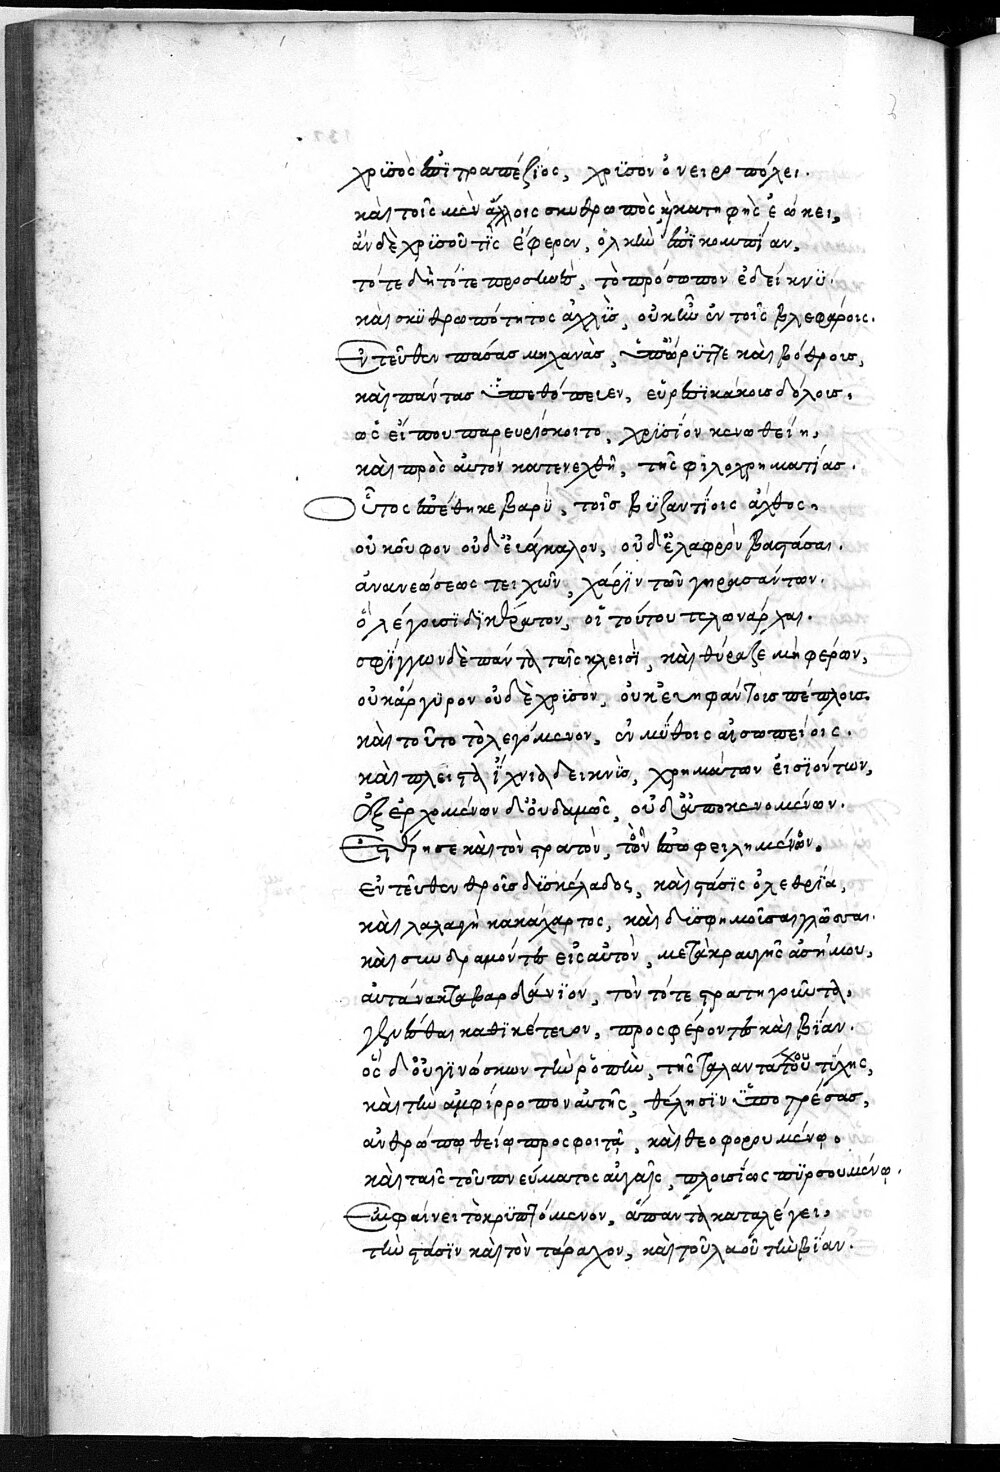 χρϊσὸς ἐπϊτραπέζϊος, χρϊσον ὀνειροπόλει.
καὶ τοῖς μὲν ἄλλοις σκυθρωπὸς κατηφὴς ἐώκει,
ἀν δὲ χρϊσοῦ τῒς ἔφερεν, ὁλκὴν ἐπϊκομπΐαν,
τότε δὴ τότε προσηνὲς, τὸ πρόσωπον ἐδείκνϋ.
καὶ σκϋθρωπότητος ἀχλῒς, οὐκ ἦν ἐν τοῖς βλεφάροις.
Ἐντεῦθεν πάσας μηχανὰς, ὑπώρϋττε καὶ βόθροις,
καὶ πάντας ὑπεθόπευεν, εὑρεπϊκάκοις δόλοις,
ὡς εἴ που παρευρίσκοιτο, χρϊσίον κενωθείη,
καὶ πρὸς αὐτὸν κατενεχθῆ, τῆς φιλοχρηματίας.
Οὗτος ἐπέθηκε βαρϋ, τοῖς Βϋζαντΐοις ἄχθος,
οὐ κοῦφον οὐδ' εὐάγκαλον, οὐδ' ἐλαφρὸν βαστάσαι.
ἀνανεώσεως τειχῶν, χάρϊν τῶν γηρασάντων.
ὃ λέγουσϊ δϊκέρατον, οἱ τούτου τελωνάρχαι.
σφϊγγων δὲ πάντα ταῖς κλεισῒ, καὶ θύραζε μὴ φέρων,
οὐκ ἄργϋρον οὐδὲ χρϊσον, οὐκ ἐλεφαντοις πέπλοις
καὶ τοῦτο τὸ λεγόμενον, ἐν μύθοις αἰσωπείοις.
καὶ πλεῖστα ἴχνια δεικνῒς, χρημάτων εἰσϊόντων,
ἐξερχομένων δ' οὐδαμῶς, οὐδ' ἀποκενομένων.
Ἐστέρησε καὶ τὸν στρατὸν, τῶν ἐπωφειλημένων.
ἐντεῦθεν θροῦς δϊσκέλαδος, καὶ στάσϊς ὀλεθρΐα,
καὶ λαλαγὴ κακόχαρτος, καὶ δϊσφημοῦσαι γλῶσσαι.
καὶ συνδραμόντες εἰς αὐτὸν, μετὰ κραυγῆς ἀσήμου,
αὐτάνακτα βαρδάνϊον, τὸν τότε στρατηγοῦντα,
γενέσθαι καθϊκέτευον, προσφέροντες καὶ βΐαν.
ὃς δ' οὐ γϊνώσκων τὴν ῥοπὴν, τῆς ταλαντούχου τύχης,
καὶ τὴν ἀμφίρροπον αὐτῆς, θέλησϊν ὑποτρέσας,
ἀνθρώπῳ θείῳ προσφοιτᾷ, καὶ θεοφορουμένῳ.
καὶ ταῖς τοῦ πνεύματος αὐγαῖς, πλουσίως πϋρσουμένῳ.
Ἐμφαίνει τὸ κρϋπτόμενον, ἅπαντα καταλέγει,
τὴν στάσϊν καὶ τὸν τάραχον, καὶ τοῦ λαοῦ τὴν βΐαν.